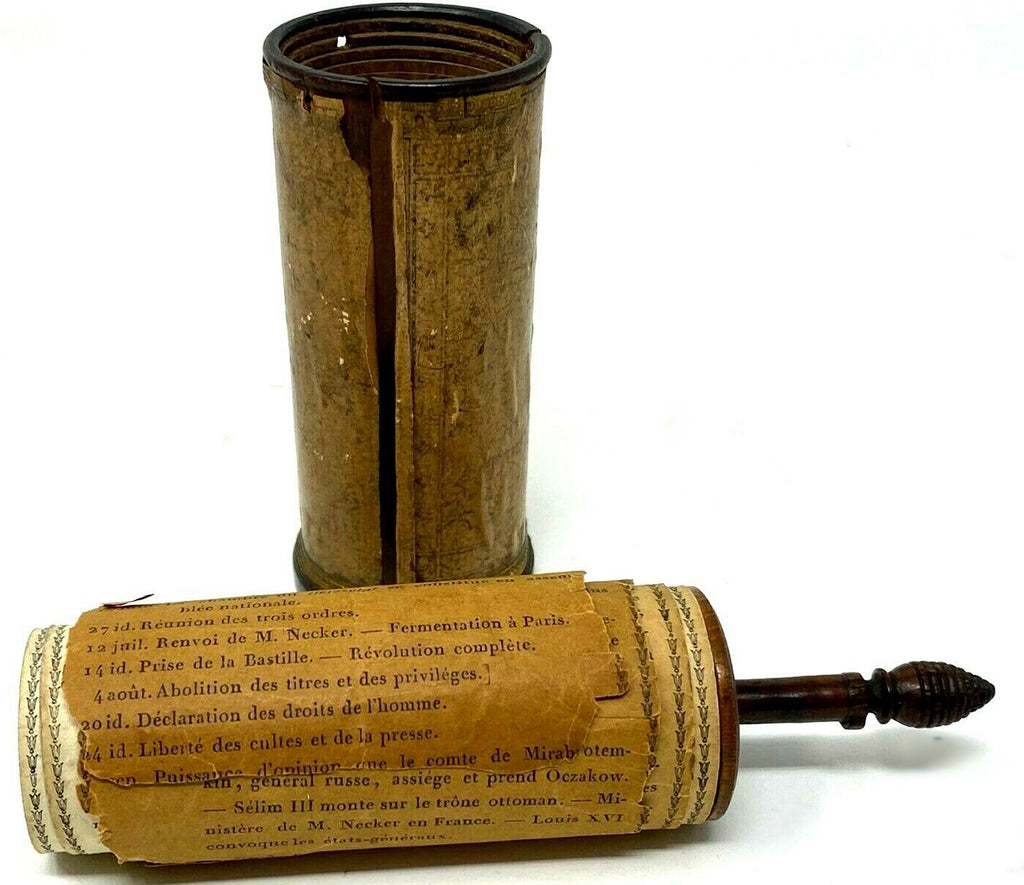 blée nationale.
27 id. Réunion des trois ordres.
12 juil. Renvoi de M. Necker. — Fermentation à Paris.
14 id. Prise de la Bastille. — Révolution complète.
4 août. Abolition des titres et des priviléges.]
20 id. Déclaration des droits de l'homme.
24 id. Liberté des cultes et de la presse.
Puissance d'opinion que le comte de Mirab
otem-
kin, général russe, assiége et prend Oczakow.
— Sélim III monte sur le trône ottoman. — Mi-
nistère de M. Necker en France. — Louis XVI
convoque les états-généraux.